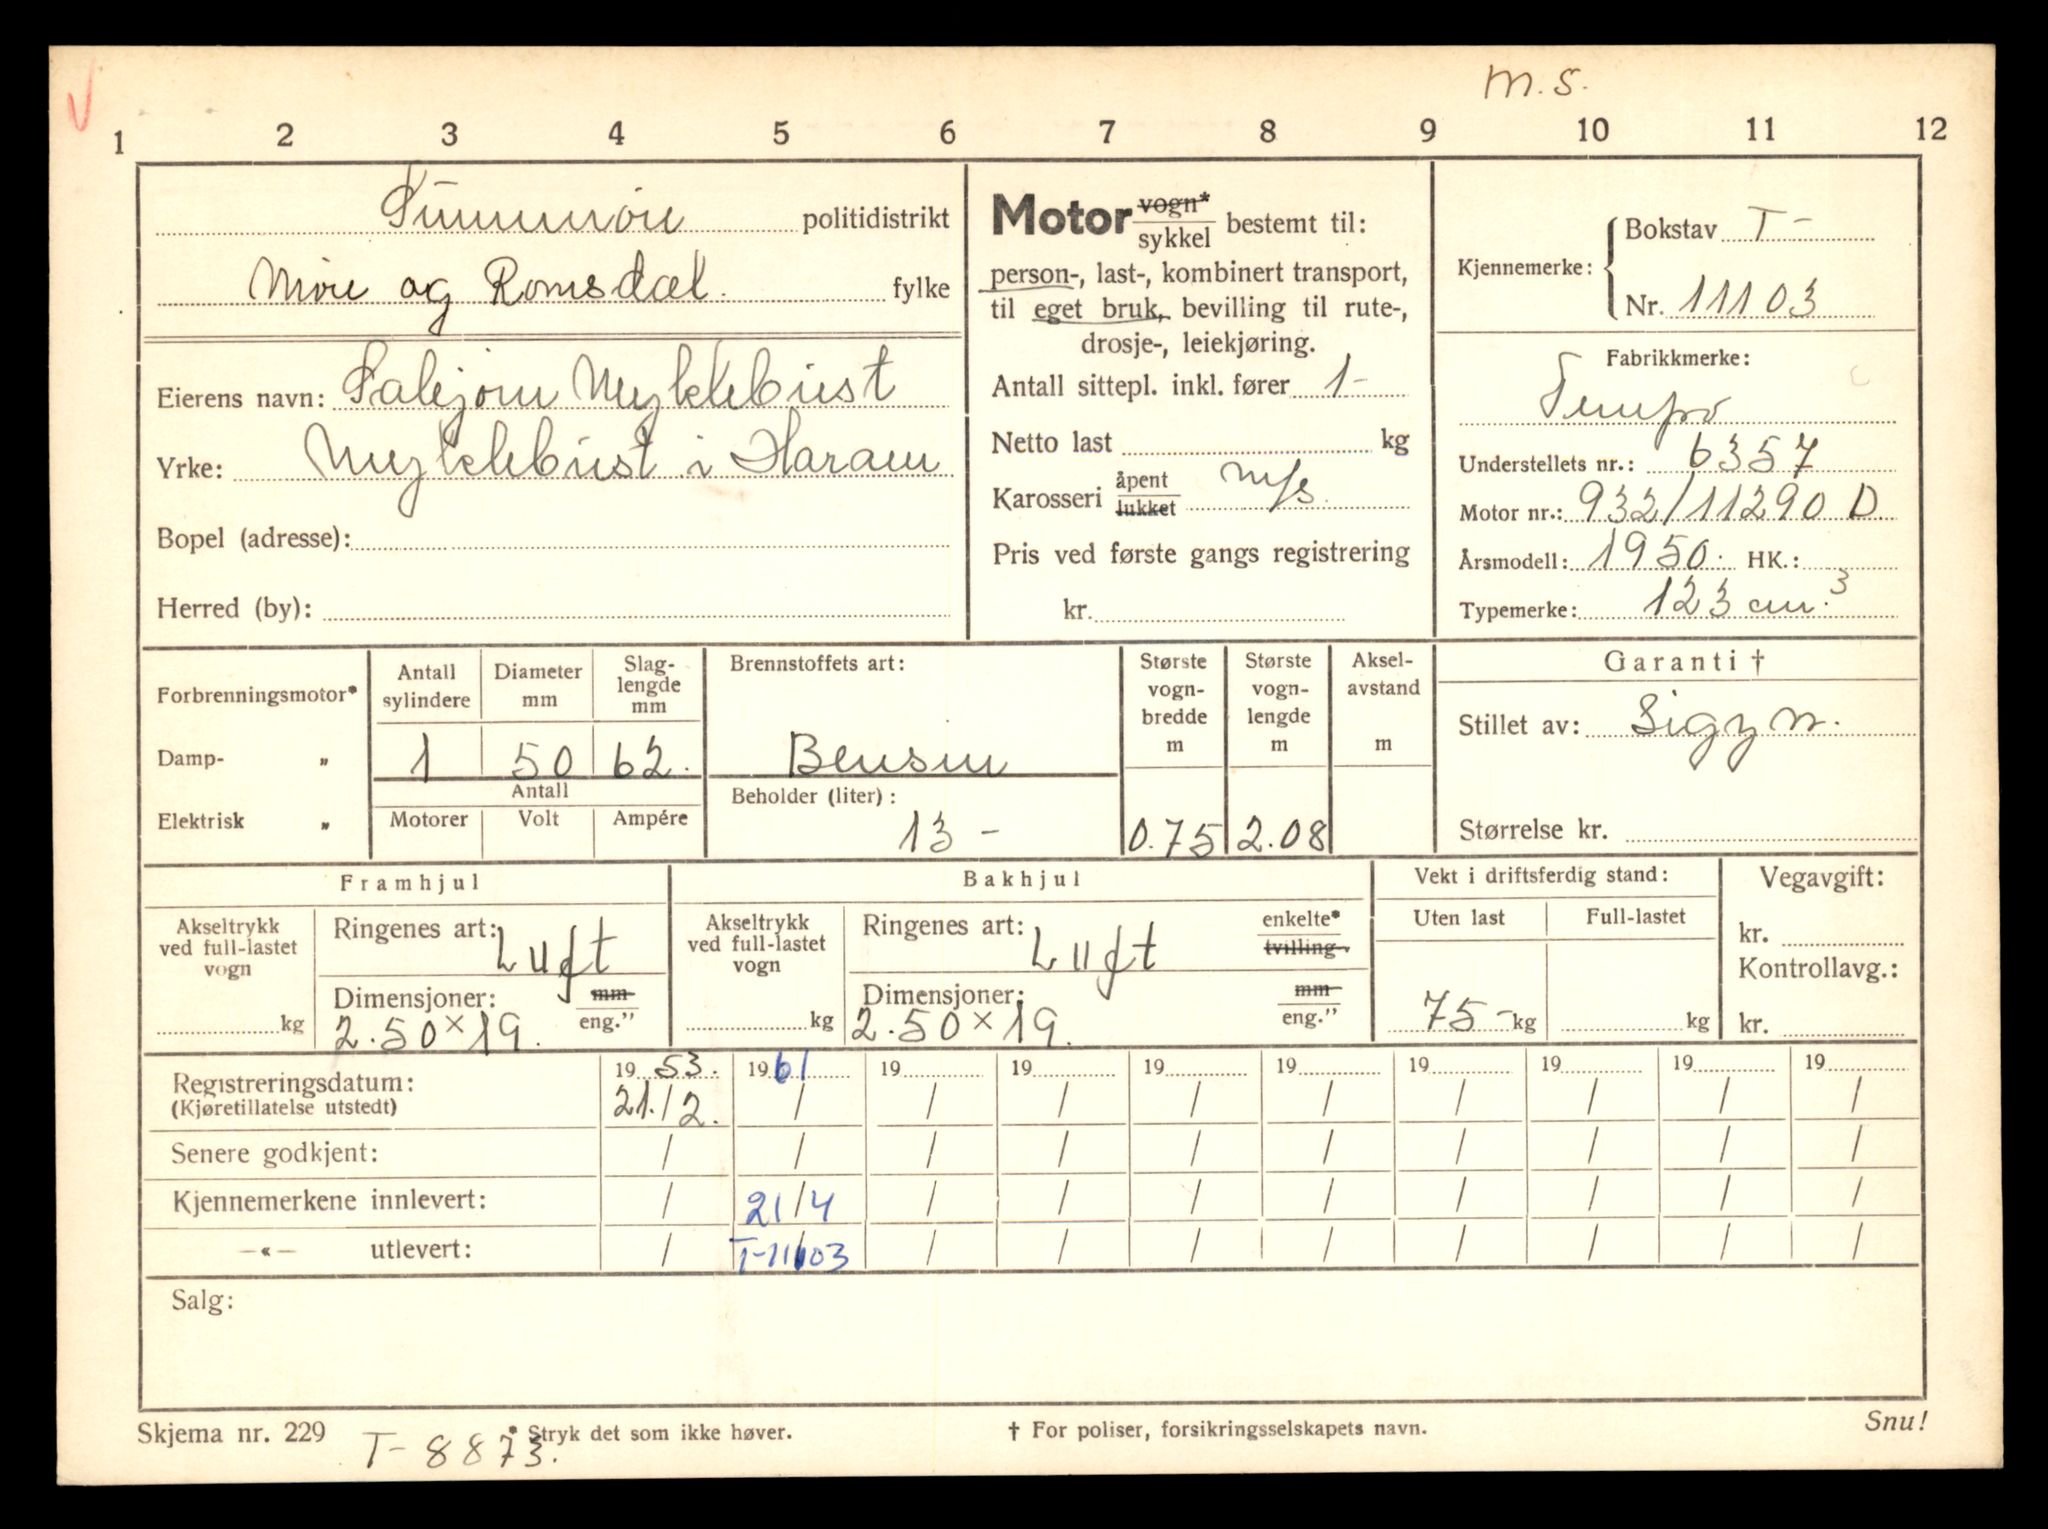 m.s.
1 2 3 4 5 6 7 8 9 10 11 12
Sunnmøre politidistrikt
Møre og Romsdal. fylke
Eierens navn: Salejorn Myklebust
Yrke: Myklebust i Haram
Bopel (adresse):
Herred (by):
Motor vogn*/sykkel bestemt til:
person-, last-, kombinert transport,
til eget bruk, bevilling til rute-,
drosje-, leiekjøring.
Antall sittepl. inkl. fører 1-
Netto last kg
Karosseri åpent/lukket m/s.
Pris ved første gangs registrering
kr.
Kjennemerke: Bokstav T-
Nr. 11103
Fabrikkmerke:
Tempo
Understellets nr.: 6357
Motor nr.: 932/11290 D
Årsmodell: 1950. HK.:
Typemerke: 123 cm.³
Forbrenningsmotor*
Damp- „
Elektrisk „
Antall sylindere Diameter mm Slag-lengde mm
1 50 62.
Antall
Motorer Volt Ampére
Brennstoffets art:
Bensin
Beholder (liter):
13 -
Største vogn-bredde m
0.75
Største vogn-lengde m
2.08
Aksel-avstand m
Garanti †
Stillet av: Sigyn.
Størrelse kr.
Framhjul
Akseltrykk ved full-lastet vogn
kg
Ringenes art: Luft
Dimensjoner: mm/eng.”
2.50 x 19.
Bakhjul
Akseltrykk ved full-lastet vogn
kg
Ringenes art: Luft enkelte*/tvilling-
Dimensjoner: mm/eng.”
2.50 x 19.
Vekt i driftsferdig stand:
Uten last Full-lastet
75- kg kg
Vegavgift:
kr.
Kontrollavg.:
kr.
Registreringsdatum: 19 53. 19 61 19 19 19 19 19 19 19 19
(Kjøretillatelse utstedt) 21./2. / / / / / / / / /
Senere godkjent: / / / / / / / / / /
Kjennemerkene innlevert: / 21/4 / / / / / / / /
—«— utlevert: / T-11103 / / / / / / / /
Salg:
Skjema nr. 229 * Stryk det som ikke høver. † For poliser, forsikringsselskapets navn. Snu!
T-8873.